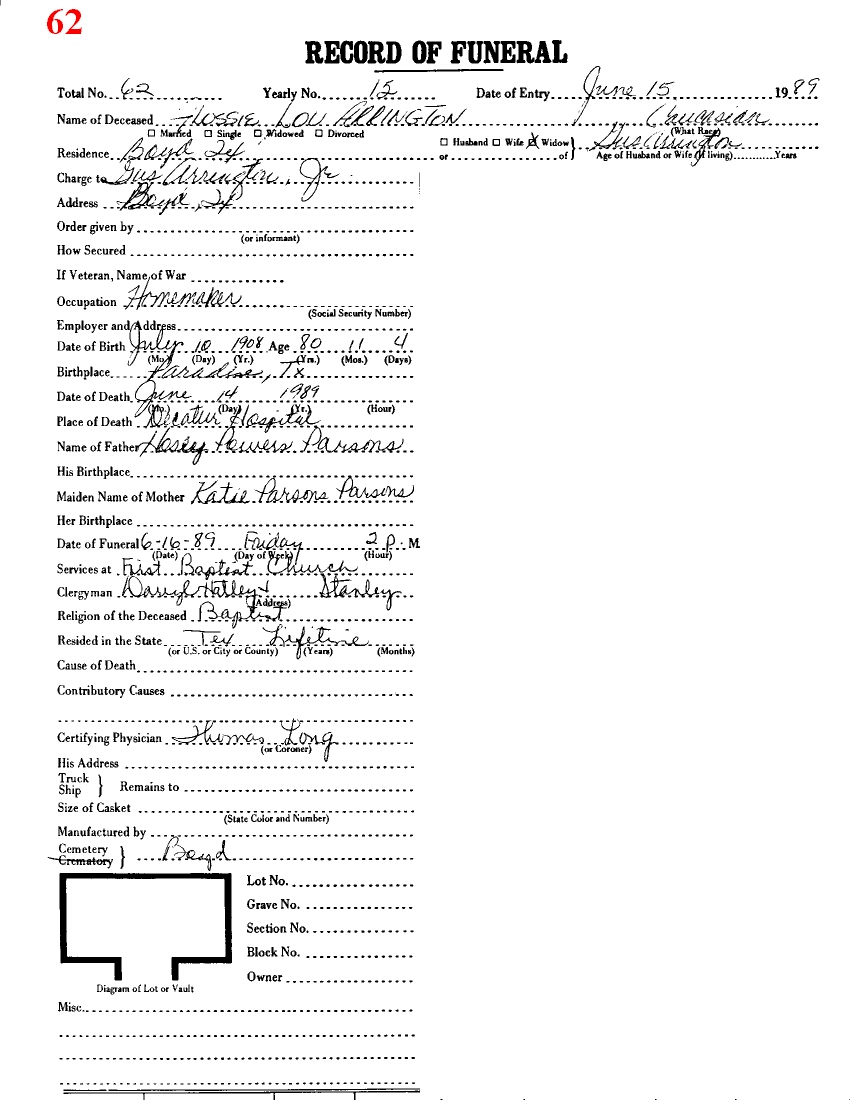 62
RECORD OF FUNERAL
Total No. 62 Yearly No. 15 Date of Entry June 15 1989
Name of Deceased Flossie Lou Arrington Caucasian
☐ Married ☐ Single ☐ Widowed ☐ Divorced (What Race)
Residence Boyd Tx ☐ Husband ☐ Wife ☒ Widow Gus Arrington
or of Age of Husband or Wife (If living) Years
Charge to Gus Arrington, Jr.
Address Boyd, Tx
Order given by
(or informant)
How Secured
If Veteran, Name of War
Occupation Homemaker
(Social Security Number)
Employer and Address
Date of Birth July 10 1908 Age 80 11 4
(Mo.) (Day) (Yr.) (Yrs.) (Mos.) (Days)
Birthplace Paradise, Tx
Date of Death June 14 1989
(Mo.) (Day) (Yr.) (Hour)
Place of Death Decatur Hospital
Name of Father Hosey Powers Parsons
His Birthplace
Maiden Name of Mother Katie Parsons Parsons
Her Birthplace
Date of Funeral 6-16-89 Friday 2 P. M.
(Date) (Day of Week) (Hour)
Services at First Baptist Church
Clergyman Darryl Hatley & Stanley
(Address)
Religion of the Deceased Baptist
Resided in the State Tex Lifetime
(or U.S. or City or County) (Years) (Months)
Cause of Death
Contributory Causes
Certifying Physician Thomas Long
(or Coroner)
His Address
Truck
Ship } Remains to
Size of Casket
(State Color and Number)
Manufactured by
Cemetery
Crematory } Boyd
Lot No.
Grave No.
Section No.
Block No.
Owner
Diagram of Lot or Vault
Misc.